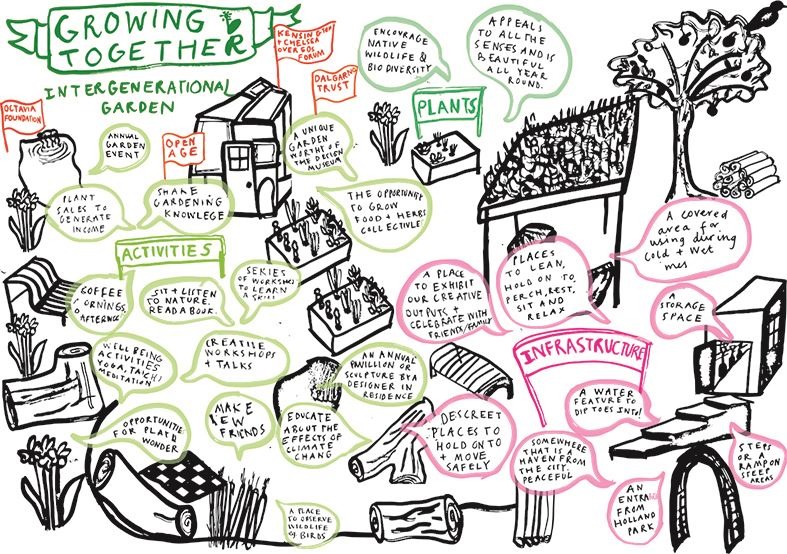 GROWING
TOGETHER
INTERGENERATIONAL
GARDEN
OCTAVIA
FOUNDATION
KENSINGTON
+ CHELSEA
OVER 50S
FORUM
DALGARNO
TRUST
OPEN
AGE
ENCOURAGE
NATIVE
WILDLIFE &
BIODIVERSITY
APPEALS
TO ALL THE
SENSES AND IS
BEAUTIFUL
ALL YEAR
ROUND.
PLANTS
ANNUAL
GARDEN
EVENT
A UNIQUE
GARDEN
WORTHY OF
THE DESIGN
MUSEUM
PLANT
SALES TO
GENERATE
INCOME
SHARE
GARDENING
KNOWLEGE
THE OPPORTUNITY
TO GROW
FOOD + HERBS
COLLECTIVELY
ACTIVITIES
COFFEE
MORNINGS,
AFTERNOONS
SIT + LISTEN
TO NATURE.
READ A BOOK.
SERIES
OF WORKSHOPS
TO LEARN
A SKILL
WELL BEING
ACTIVITIES
YOGA, TAI CHI
MEDITATION
CREATIVE
WORKSHOPS
+ TALKS
AN ANNUAL
PAVILLION OR
SCULPTURE BY A
DESIGNER IN
RESIDENCE
OPPORTUNITIES
FOR PLAY &
WONDER
MAKE
NEW
FRIENDS
EDUCATE
ABOUT THE
EFFECTS OF
CLIMATE
CHANG
A PLACE
TO OBSERVE
WILDLIFE
& BIRDS
A PLACE
TO EXHIBIT
OUR CREATIVE
OUTPUTS +
CELEBRATE WITH
FRIENDS/FAMILY
PLACES
TO LEAN,
HOLD ON TO
PERCH, REST,
SIT AND
RELAX
A covered
area for
using during
cold + wet
A
STORAGE
SPACE
INFRASTRUCTURE
DESCREET
PLACES TO
HOLD ON TO
+ MOVE
SAFELY
A WATER
FEATURE TO
DIP TOES INTO!
SOMEWHERE
THAT IS A
HAVEN FROM
THE CITY.
PEACEFUL
STEPS
OR A
RAMP ON
STEEP
AREAS
AN
FROM
HOLLAND
PARK